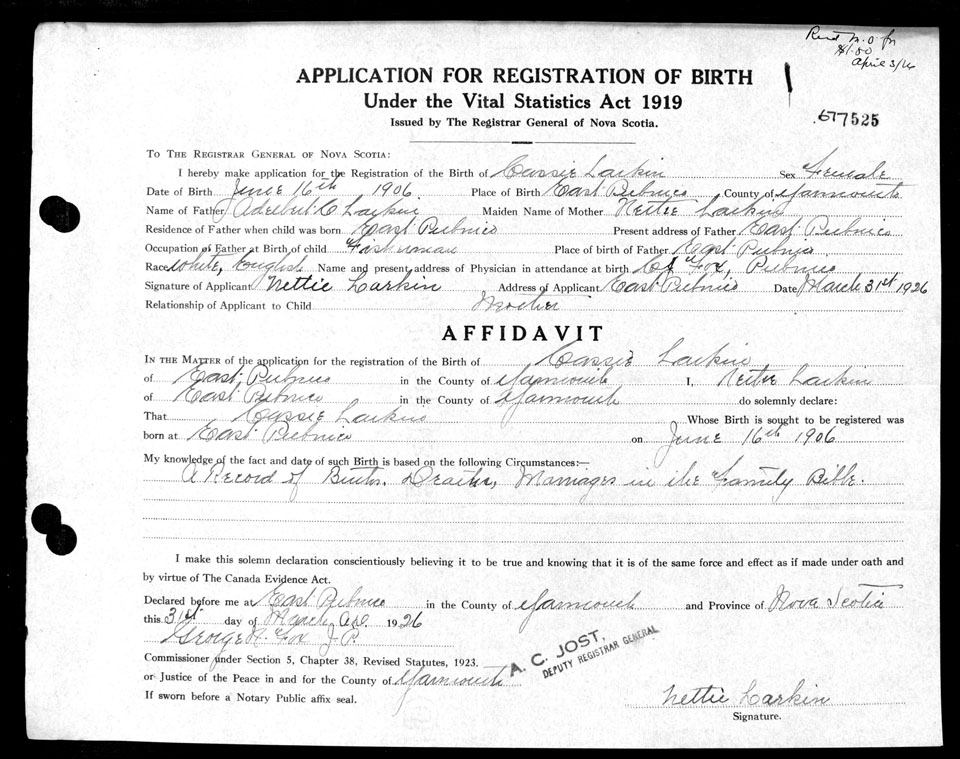 Recd M.O. for
$1.00
April 3/26
APPLICATION FOR REGISTRATION OF BIRTH
Under the Vital Statistics Act 1919
Issued by The Registrar General of Nova Scotia.
677525
TO THE REGISTRAR GENERAL OF NOVA SCOTIA:
I hereby make application for the Registration of the Birth of Cassie Larkin Sex Female
Date of Birth June 16th 1906 Place of Birth East Pubnico County of Yarmouth
Name of Father C Larkin Maiden Name of Mother Nettie Larkin
Residence of Father when child was born East Pubnico Present address of Father East Pubnico
Occupation of Father at Birth of child Fisherman Place of birth of Father East Pubnico
Race white, English Name and present address of Physician in attendance at birth Fox, Pubnico
Signature of Applicant Nettie Larkin Address of Applicant East Pubnico Date March 31st 1926
Relationship of Applicant to Child Mother
AFFIDAVIT
IN THE MATTER of the application for the registration of the Birth of Cassie Larkin
of East Pubnico in the County of Yarmouth I, Nettie Larkin
of East Pubnico in the County of Yarmouth do solemnly declare:
That Cassie Larkin Whose Birth is sought to be registered was
born at East Pubnico on June 16th 1906
My knowledge of the fact and date of such Birth is based on the following Circumstances:—
A Record of Births, Deaths, Marriages in the Family Bible.
I make this solemn declaration conscientiously believing it to be true and knowing that it is of the same force and effect as if made under oath and
by virtue of The Canada Evidence Act.
Declared before me at East Pubnico in the County of Yarmouth and Province of Nova Scotia
this 31st day of March A.D. 1926
George H. Fox J.P.
Commissioner under Section 5, Chapter 38, Revised Statutes, 1923.
A. C. JOST,
DEPUTY REGISTRAR GENERAL
or Justice of the Peace in and for the County of Yarmouth
If sworn before a Notary Public affix seal.
Nettie Larkin
Signature.